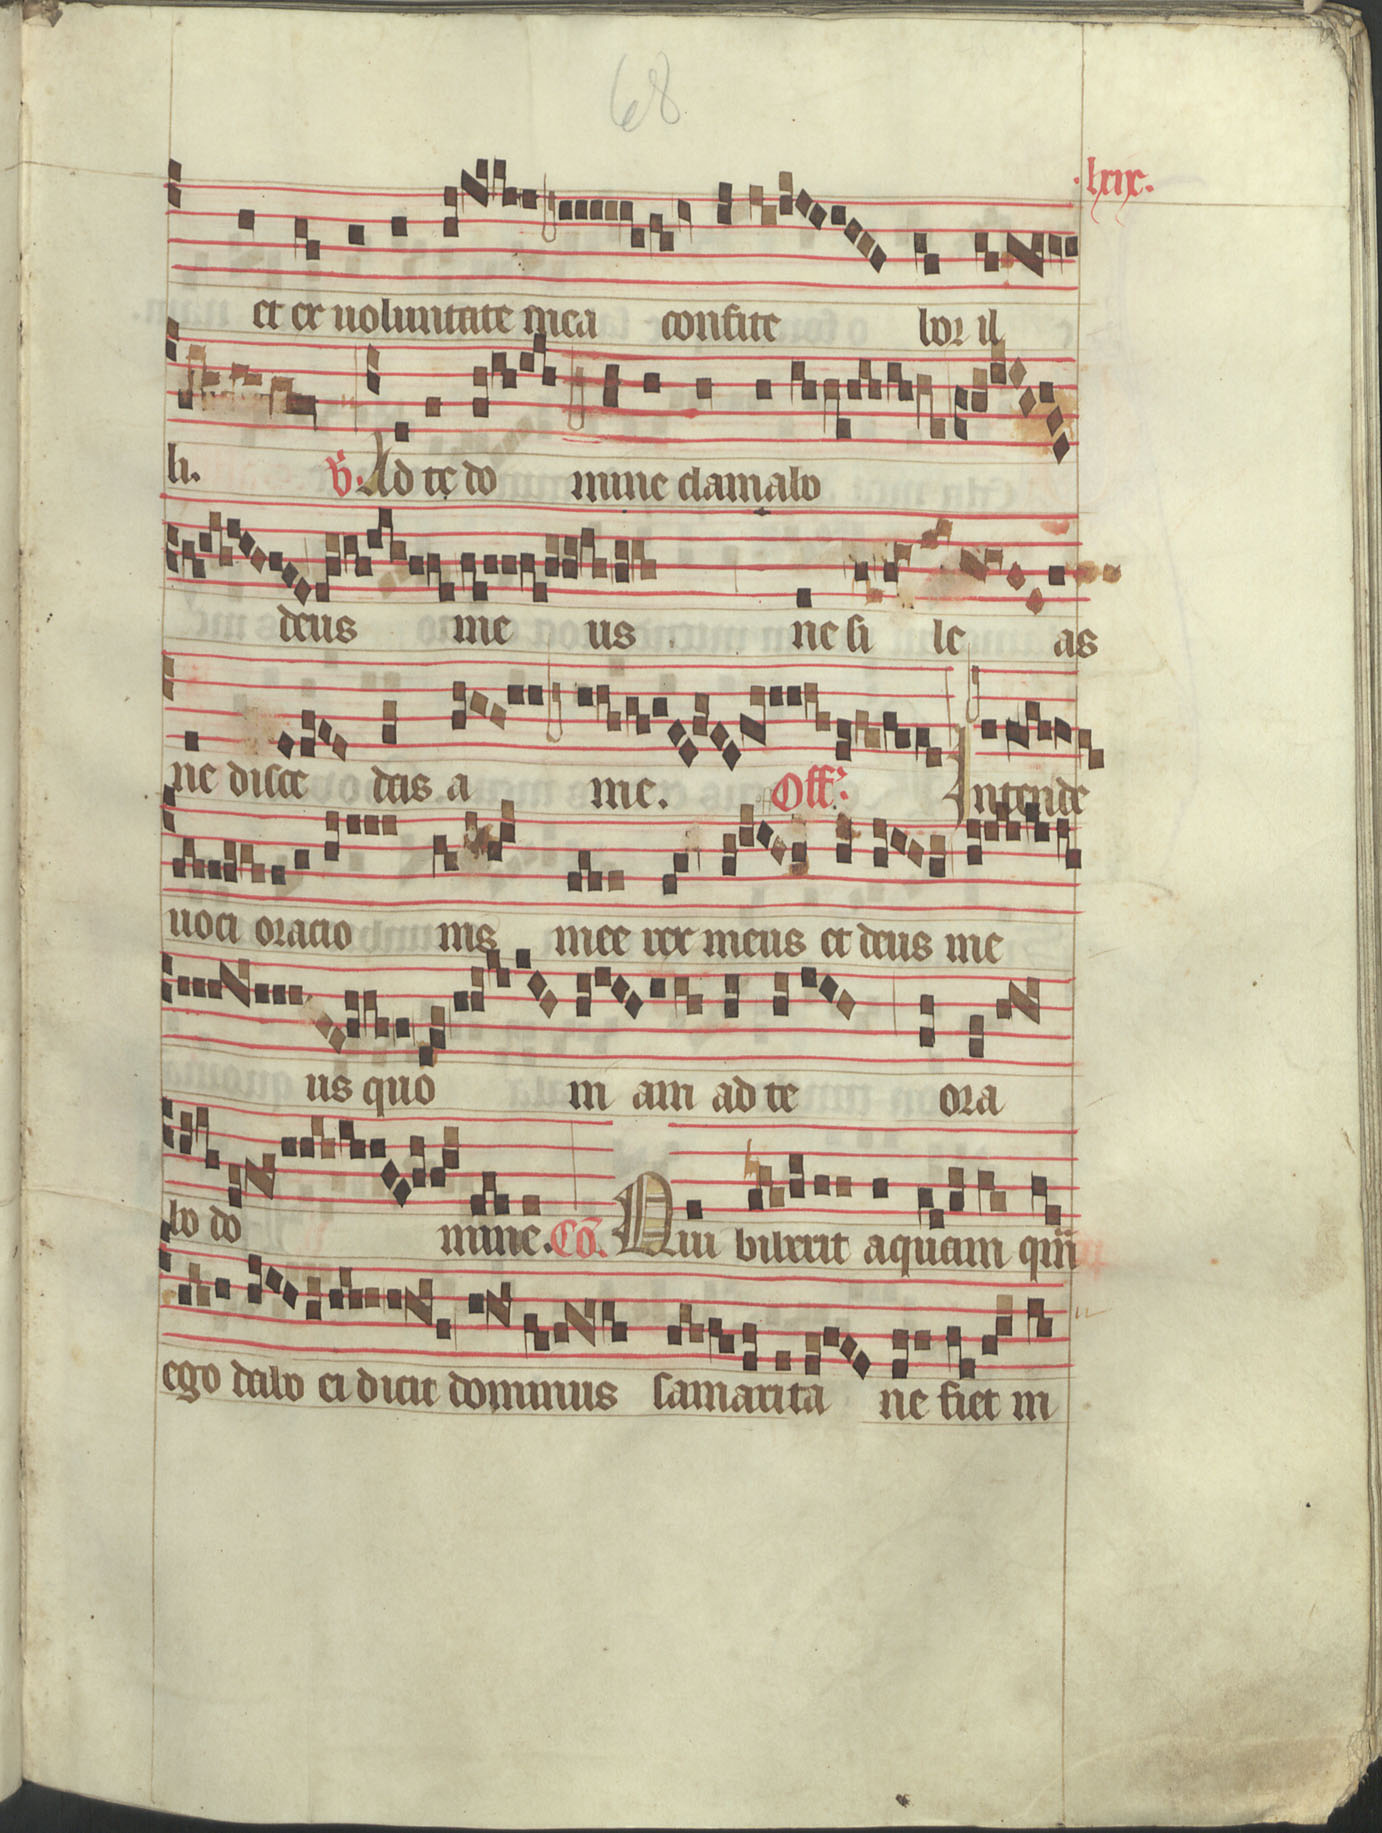 68
.lxix.
et ex uoluntate mea confite bor il
li. V. Ad te do mine clamabo
deus me us ne si le as
ne disce deis a me. Off. Intende
uoci oracio nis mee rex meus et deus me
us quo ni am ad te ora
bo do mine. Cō. Qui biberit aquam quā
ego dabo ei dicit dominus samarita ne fiet in